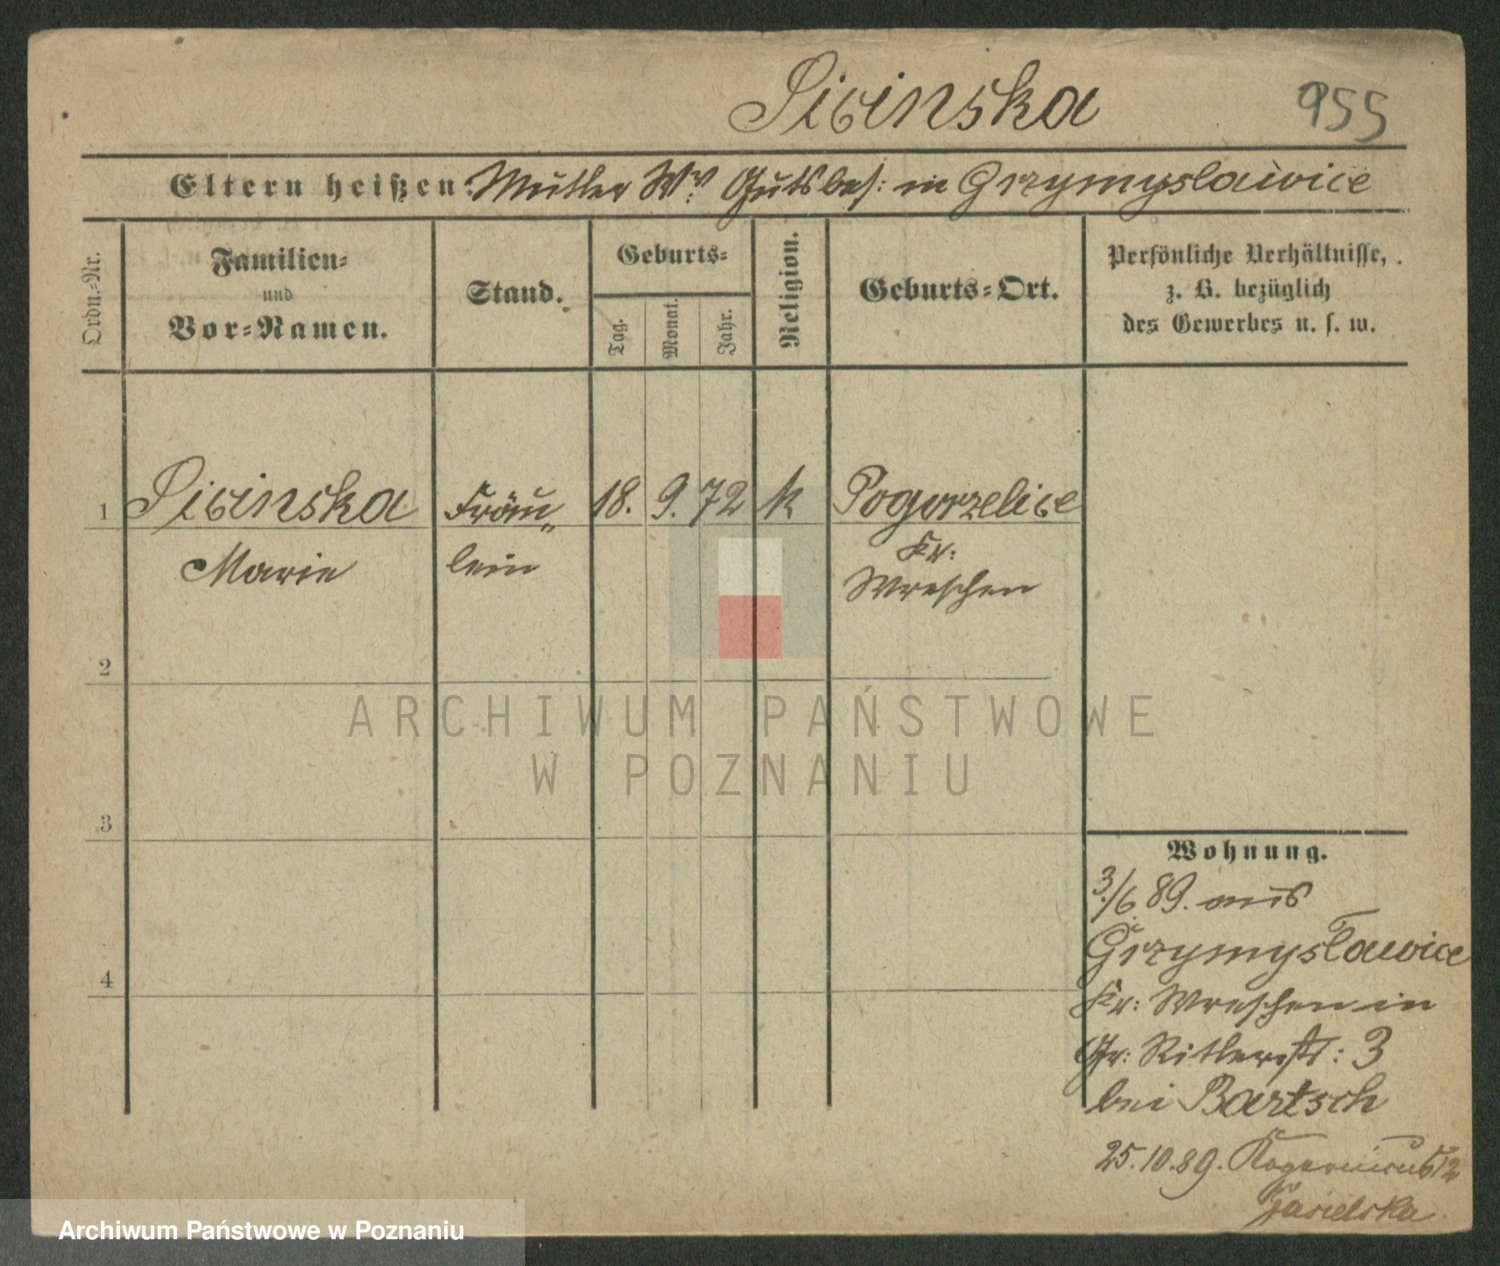 Sicinska 955
Eltern heißen: Mutter Ww. Gutsbes: in Grzymyslawice
Ordn.-Nr.
Familien-
und
Vor-Namen.
Stand.
Geburts-
Tag.
Monat.
Jahr.
Religion.
Geburts-Ort.
Persönliche Verhältnisse,
z. B. bezüglich
des Gewerbes u. s. w.
1 Sicinska Fräu- 18. 9. 72 k Pogorzelice
Marie lein Kr:
Wreschen
2
3
4
ARCHIWUM PAŃSTWOWE
W POZNANIU
Wohnung.
3./6. 89. aus
Grzymyslawice
Kr: Wreschen in
Gr: Ritterst: 3
bei Bartsch
25.10.89. 12
Jasielska.
Archiwum Państwowe w Poznaniu